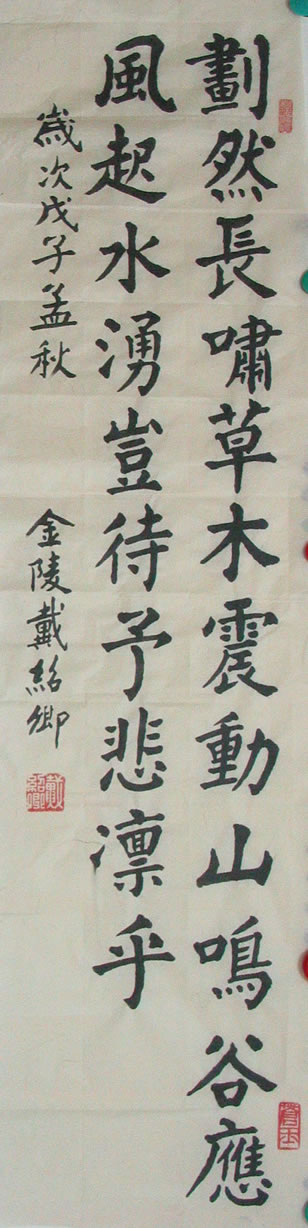 劃然長嘯草木震動山鳴谷應
風起水湧豈待予悲凛乎
歲次戊子孟秋
金陵戴紹卿
戴紹卿